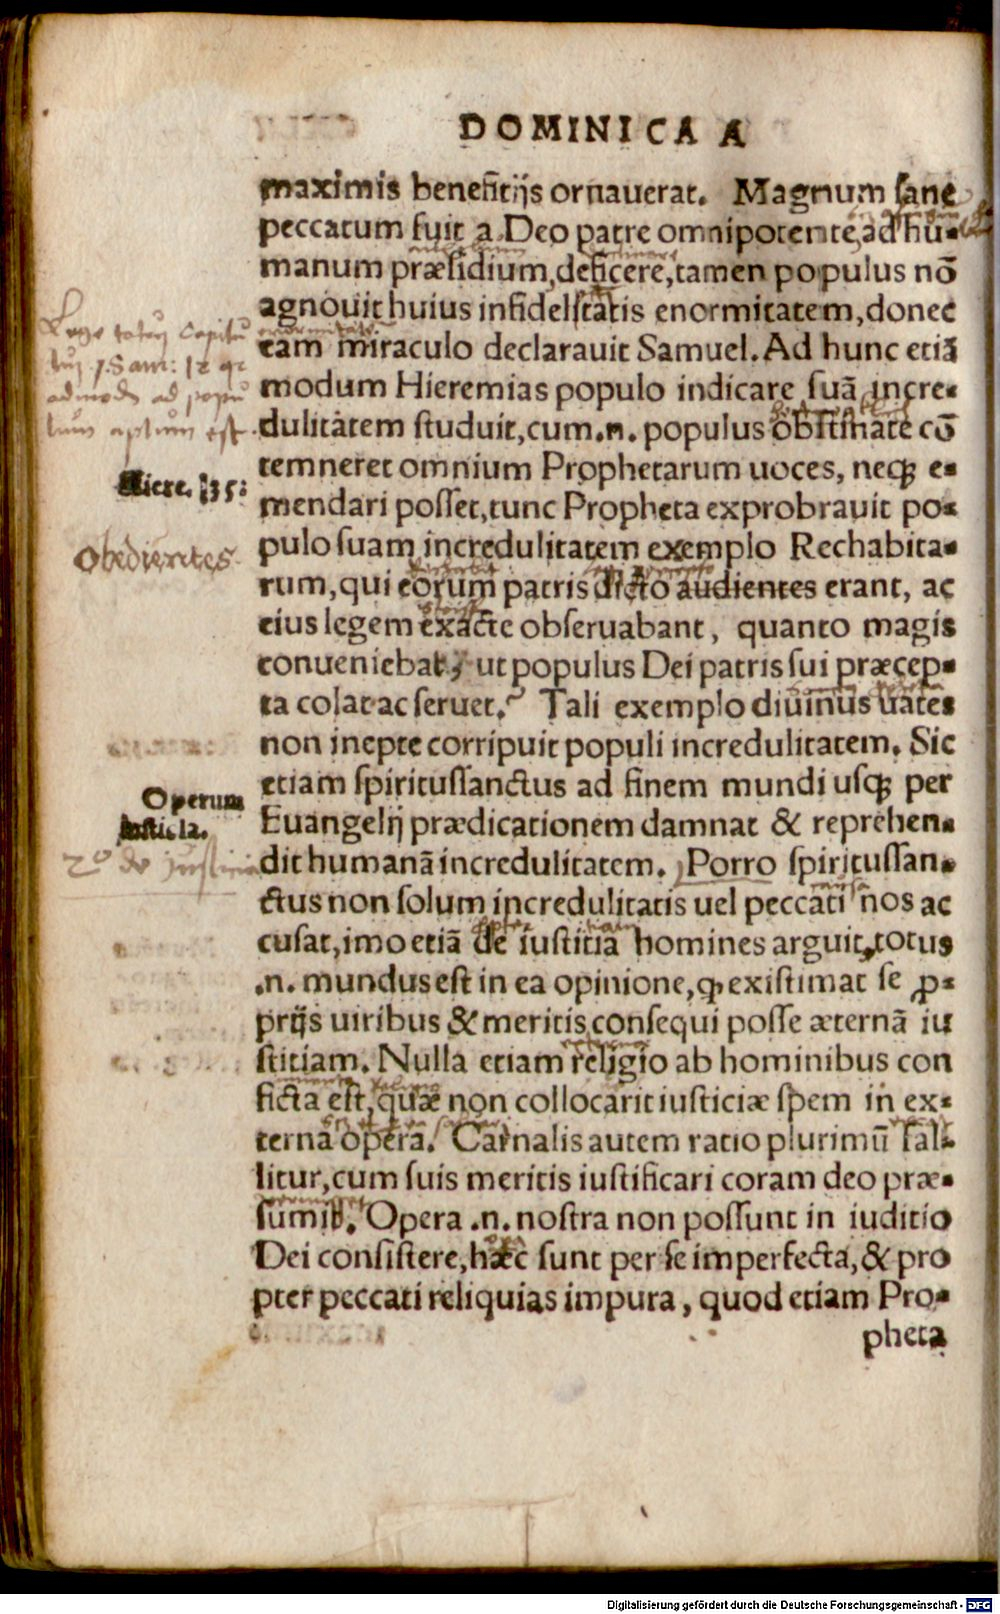 DOMINICA A
maximis benefitijs ornauerat. Magnum sane
peccatum fuit a Deo patre omnipotente ad hu-
manum præsidium, deficere, tamen populus nō
agnouit huius infidelitatis enormitatem, donec
eam miraculo declarauit Samuel. Ad hunc etiā
modum Hieremias populo indicare suā incre-
dulitatem studuit, cum .n. populus obstinate cō
temneret omnium Prophetarum uoces, neqꝫ e-
mendari posset, tunc Propheta exprobrauit po-
pulo suam incredulitatem exemplo Rechabita-
rum, qui eorum patris dicto audientes erant, ac
eius legem exacte obseruabant, quanto magis
conueniebat, ut populus Dei patris sui præcep-
ta colat ac seruet? Tali exemplo diuinus uates
non inepte corripuit populi incredulitatem. Sic
etiam spiritussanctus ad finem mundi usqꝫ per
Euangelij prædicationem damnat & reprehen-
dit humanā incredulitatem. Porro spiritussan-
ctus non solum incredulitatis uel peccati nos ac
cusat, imo etiā de iustitia homines arguit, totus
.n. mundus est in ea opinione, ꝙ existimat se ꝓ-
prijs uiribus & meritis consequi posse æternā iu
stitiam. Nulla etiam religio ab hominibus con
ficta est, quæ non collocarit iusticiæ spem in ex-
terna opera. Carnalis autem ratio plurimū fal-
litur, cum suis meritis iustificari coram deo præ-
sumit. Opera .n. nostra non possunt in iuditio
Dei consistere, hæc sunt per se imperfecta, & pro
pter peccati reliquias impura, quod etiam Pro-
pheta
Lege totū capitu
lū 1. Sam: 12 qꝛ
admodū ad popu
lum aptum est.
Hiere. 35:
Obedientes
Operum
iusticia.
2º de Justicia